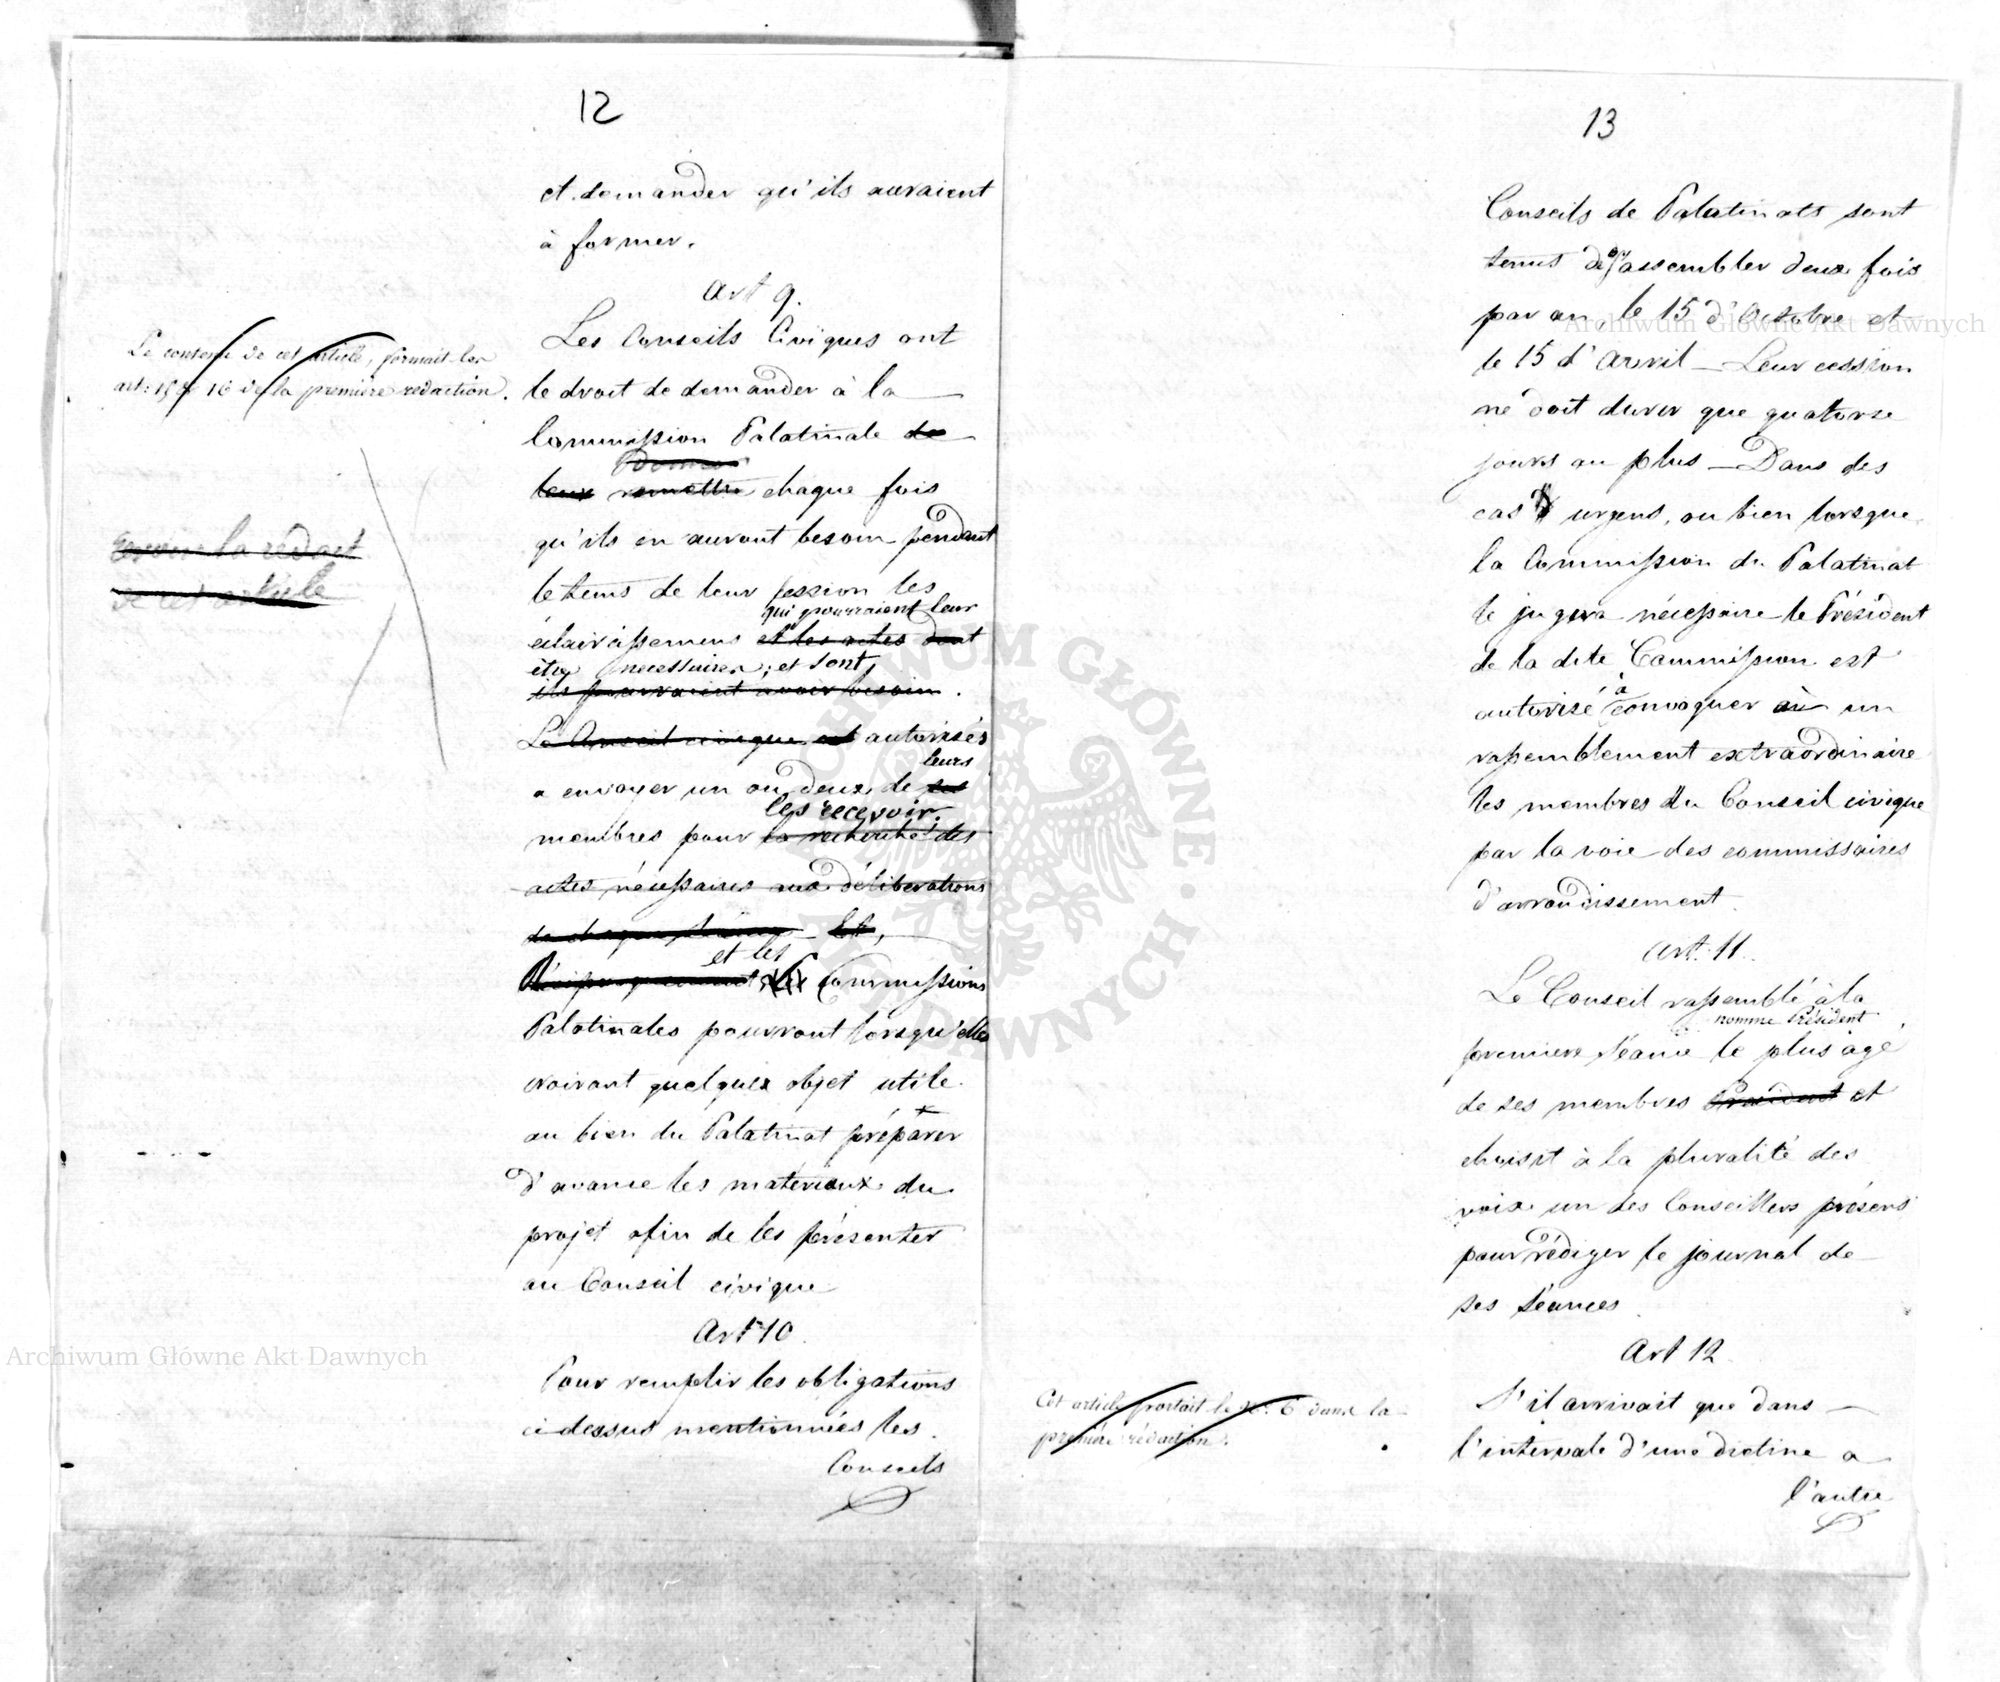 12
et demander qu'ils auraient
à former.
Art 9.
Les Conseils Civiques ont
le droit de demander à la
Commission Palatinale de
donner
leur remettre chaque fois
qu'ils en auront besoin pendant
le tems de leur session les
qui pourraient leur
éclaircissemens et les actes dont
être necessaires; et sont
ils pourraient avoir besoin.
Le Conseil civique est autorisés
leurs
a envoyer un ou deux de ses
les recevoir.
membres pour la recherche des
actes nécessaires aux déliberations
de chaque séance
et les
Réciproquement Commissions
Palatinales pourront lorsqu'elles
croiront quelques objet utile
au bien du Palatinat préparer
d'avance les materiaux du
projet afin de les présenter
au Conseil civique
Art 10.
Pour remplir les obligations
ci dessus mentionnées les
Conseils
Le contenu de cet article, formait les
art: 15 & 16 de la première redaction.
la rédact
de cet article
13
Conseils de Palatinats sont
tenus de s'assembler deux fois
par an, le 15 d'Octobre et
le 15 d'Avril — Leur cession
ne doit durer que quatorse
jours au plus — Dans des
cas urgens, ou bien lorsque
la Commission du Palatinat
le jugera nécessaire le Président
de la dite Commission est
à
autorisé convoquer en un
rassemblement extraordinaire
les membres du Conseil civique
par la voie des commissaires
d'arrondissement.
Art. 11.
Le Conseil rassemblé à la
nomme Président
premiere séance le plus agé
de ses membres Président et
choisit à la pluralité des
voix un des Conseillers présens
pour rédiger le journal de
ses séances.
Art 12.
S'il arrivait que dans
l'intervale d'une dietine a
l'autre
Cet article portait le No. 6 dans la
première rédaction.
Archiwum Główne Akt Dawnych
Archiwum Główne Akt Dawnych
ARCHIWUM GŁÓWNE AKT DAWNYCH